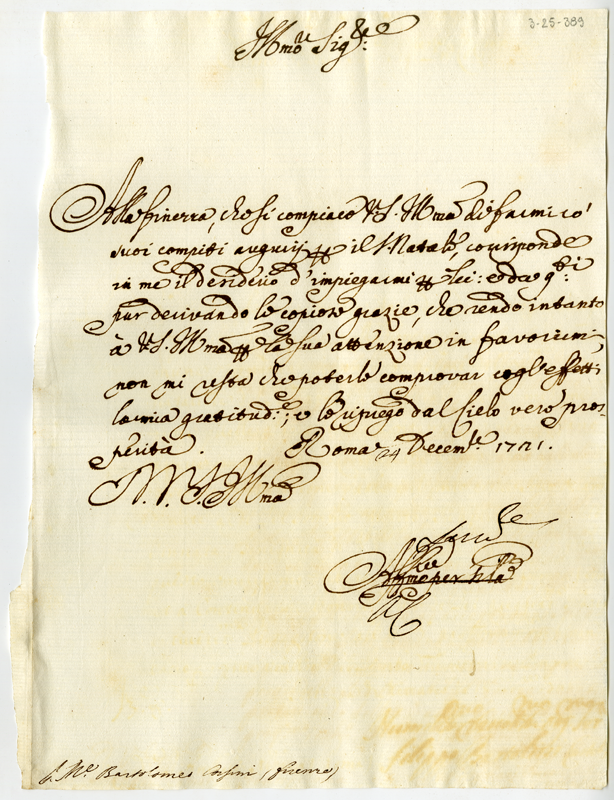 3-25-389
Illmo Sigre:
Alla finezza, che si compiace V.S. Illma di farmi co'
suoi compiti augurij p il S. Natale, corrisponde
in me il desiderio d'impiegarmi p lei: e da qsti
pur derivando le copiose grazie, che rendo intanto
à V.S. Illma p la sua attenzione in favorirmi,
non mi resta che poterle comprovar cogl'effetti
la mia gratitud:e, e le priego dal Cielo vere pros-
perità. Roma 24 Decemre 1721.
V.S. Illma
Serre
Affmo per
S. Me. Bartolomeo Corsini (Firenze)